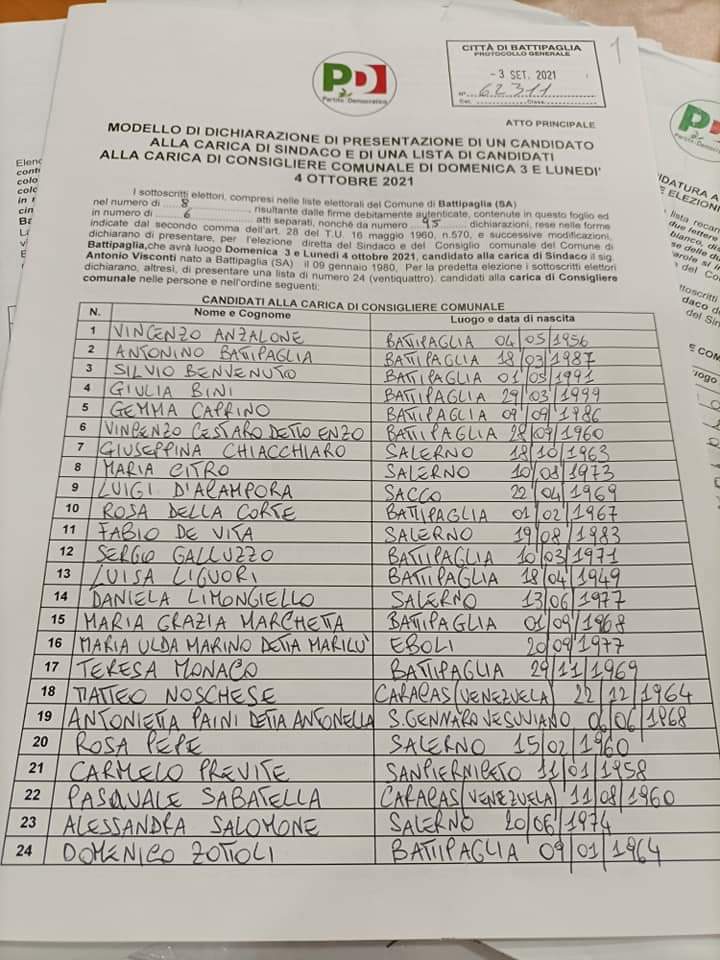 1
CITTÀ DI BATTIPAGLIA
PROTOCOLLO GENERALE
- 3 SET. 2021
N° 62311
Cat. Class.
PD
Partito Democratico
ATTO PRINCIPALE
MODELLO DI DICHIARAZIONE DI PRESENTAZIONE DI UN CANDIDATO
ALLA CARICA DI SINDACO E DI UNA LISTA DI CANDIDATI
ALLA CARICA DI CONSIGLIERE COMUNALE DI DOMENICA 3 E LUNEDI'
4 OTTOBRE 2021
I sottoscritti elettori, compresi nelle liste elettorali del Comune di Battipaglia (SA)
nel numero di ..... 8 ............., risultante dalle firme debitamente autenticate, contenute in questo foglio ed
in numero di ....... 6 ............. atti separati, nonché da numero .... 95 ...... dichiarazioni, rese nelle forme
indicate dal secondo comma dell'art. 28 del T.U. 16 maggio 1960, n.570, e successive modificazioni,
dichiarano di presentare, per l'elezione diretta del Sindaco e del Consiglio comunale del Comune di
Battipaglia,che avrà luogo Domenica 3 e Lunedi 4 ottobre 2021, candidato alla carica di Sindaco il sig.
Antonio Visconti nato a Battipaglia (SA) il 09 gennaio 1980, Per la predetta elezione i sottoscritti elettori
dichiarano, altresì, di presentare una lista di numero 24 (ventiquattro). candidati alla carica di Consigliere
comunale nelle persone e nell'ordine seguenti:
CANDIDATI ALLA CARICA DI CONSIGLIERE COMUNALE
N. Nome e Cognome Luogo e data di nascita
1 VINCENZO ANZALONE BATTIPAGLIA 04/05/1956
2 ANTONINO BATTIPAGLIA BATTIPAGLIA 18/03/1987
3 SILVIO BENVENUTO BATTIPAGLIA 01/05/1991
4 GIULIA BINI BATTIPAGLIA 29/03/1999
5 GEMMA CAPRINO BATTIPAGLIA 09/09/1986
6 VINCENZO CESTARO DETTO ENZO BATTIPAGLIA 28/09/1960
7 GIUSEPPINA CHIACCHIARO SALERNO 18/10/1963
8 MARIA CITRO SALERNO 10/08/1973
9 LUIGI D'ACAMPORA SACCO 22/04/1969
10 ROSA DELLA CORTE BATTIPAGLIA 01/02/1967
11 FABIO DE VITA SALERNO 19/08/1983
12 SERGIO GALLUZZO BATTIPAGLIA 10/03/1971
13 LUISA LIGUORI BATTIPAGLIA 18/04/1949
14 DANIELA LIMONGIELLO SALERNO 13/06/1977
15 MARIA GRAZIA MARCHETTA BATTIPAGLIA 01/09/1968
16 MARIA ULDA MARINO DETTA MARILU' EBOLI 20/09/1977
17 TERESA MONACO BATTIPAGLIA 29/11/1969
18 MATTEO NOSCHESE CARACAS (VENEZUELA) 22/12/1964
19 ANTONIETTA PAINI DETTA ANTONELLA S.GENNARO VESUVIANO 06/06/1968
20 ROSA PEPE SALERNO 15/02/1960
21 CARMELO PREVITE SANPIERNICETO 11/01/1958
22 PASQUALE SABATELLA CARACAS (VENEZUELA) 11/08/1960
23 ALESSANDRA SALOMONE SALERNO 20/06/1974
24 DOMENICO ZOTTOLI BATTIPAGLIA 09/01/1964